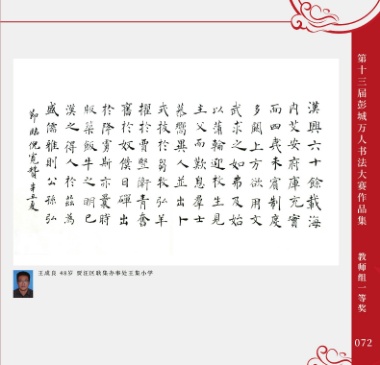 漢興六十餘載海
内艾安府庫充實
而四夷未賓制度
多闕上方欲用文
武求之如弗及始
以蒲輪迎枚生見
主父而歎息群士
慕嚮異人並出卜
式拔於芻牧弘羊
擢於賈豎衛青奮
奮於奴僕日磾出
於降虜斯亦曩時
版築飯牛之明已
漢之得人於茲為
盛儒雅則公孫弘
節臨倪寬贊 辛丑夏
王成良 48岁 贾汪区耿集办事处王集小学
第十三届彭城万人书法大赛作品集
教师组一等奖
072